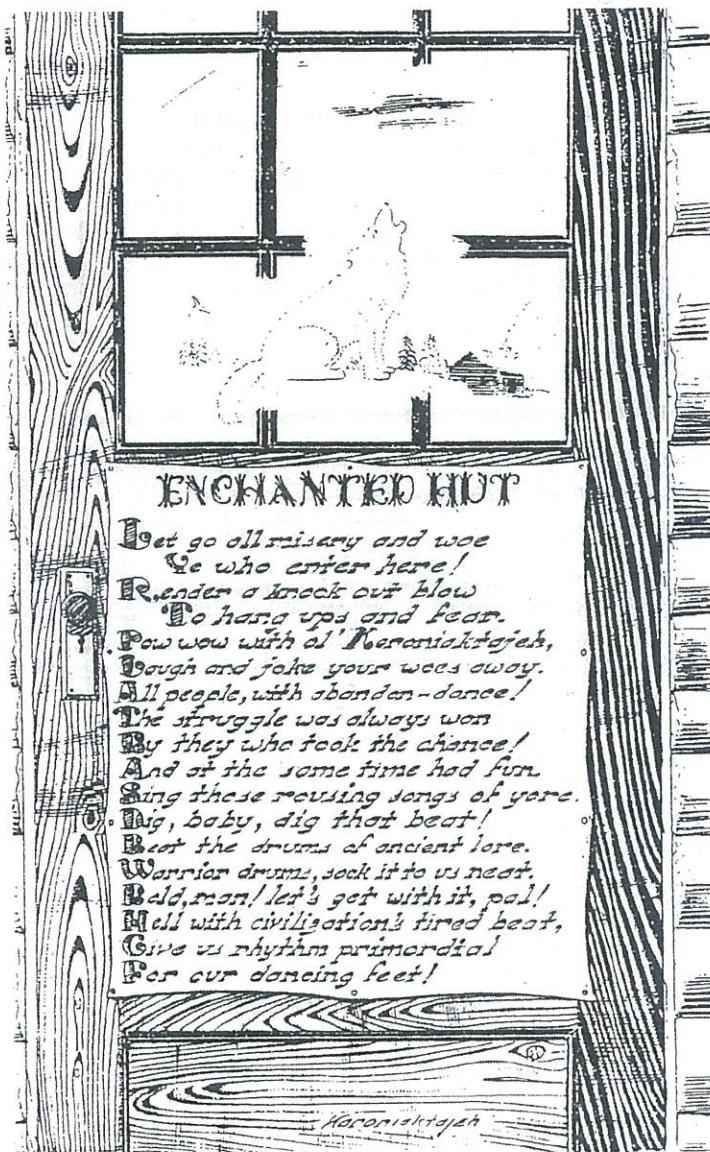 ENCHANTED HUT
Let go all misery and woe
Ye who enter here!
Render a knock out blow
To hang ups and fear.
Pow wow with ol' Karoniaktajeh,
Laugh and joke your woes away.
All people, with abandon-dance!
The struggle was always won
By they who took the chance!
And at the same time had fun.
Sing those rousing songs of yore.
Dig, baby, dig that beat!
Beat the drums of ancient lore.
Warrior drums, sock it to us neat.
Bald, man! let's get with it, pal!
Hell with civilization's tired beat,
Give us rhythm primordial
For our dancing feet!
Karoniaktajeh